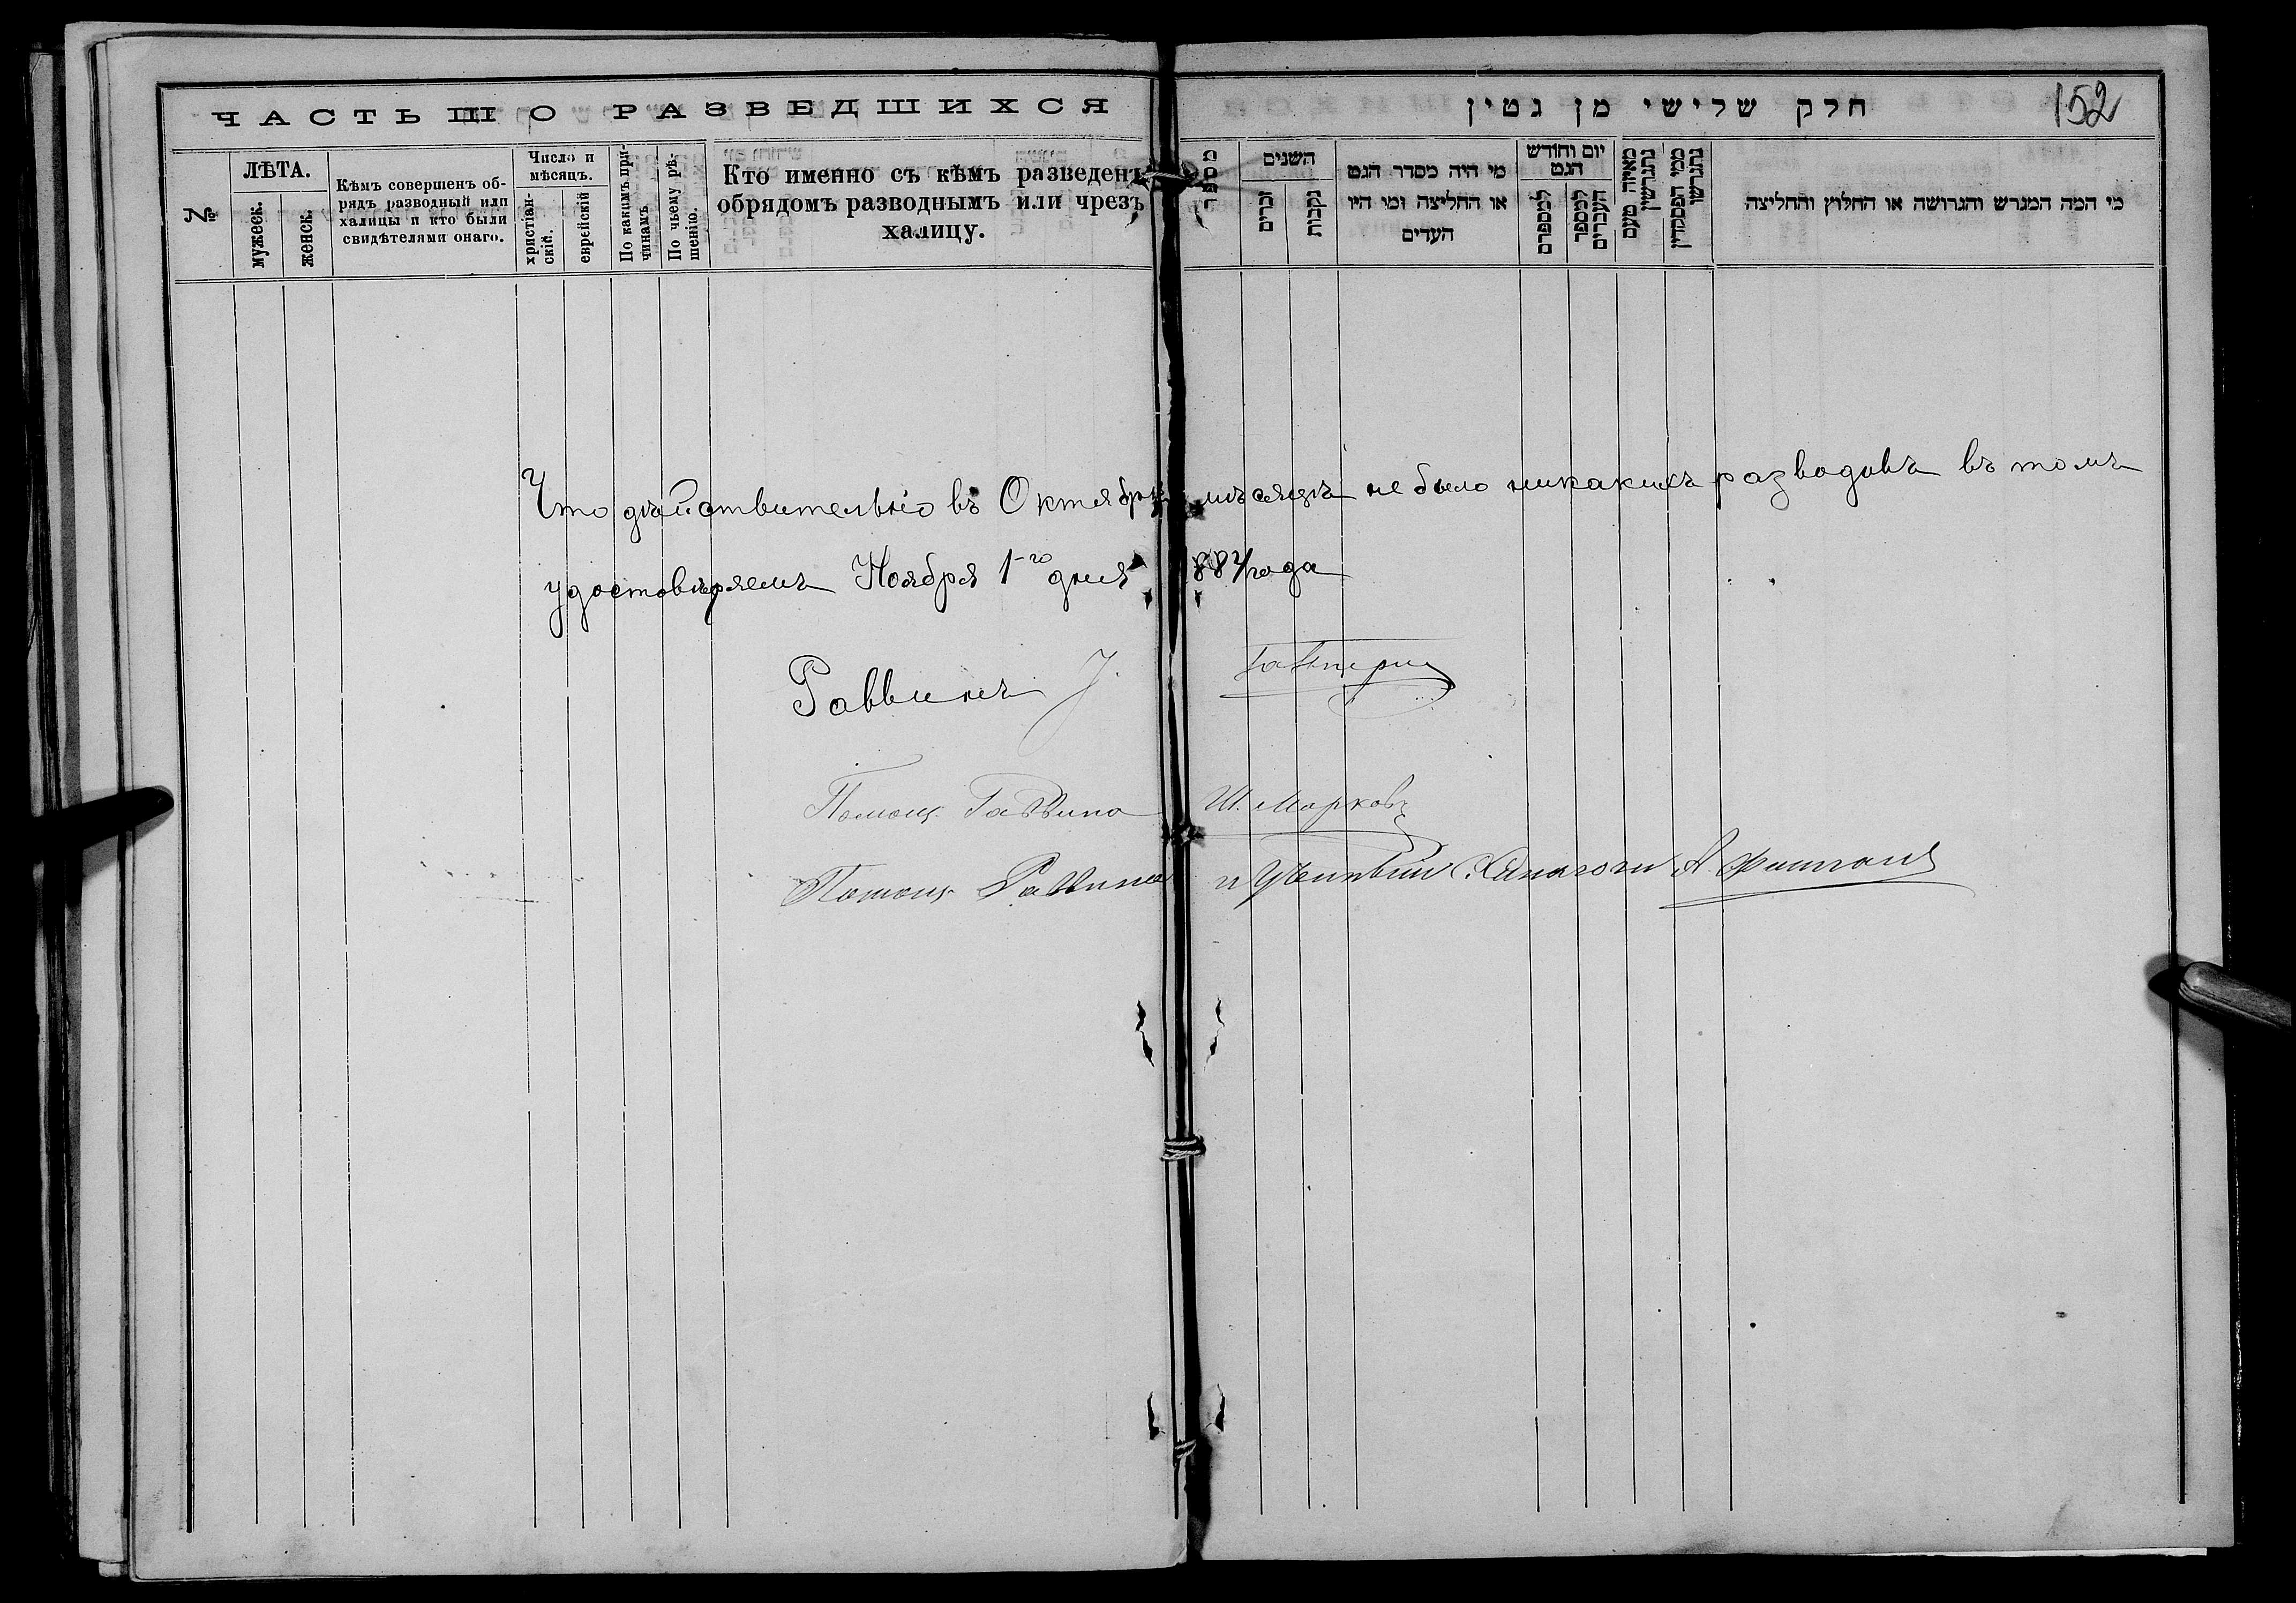 ЧАСТЬ III О РАЗВЕДШИХСЯ
№
ЛѢТА.
мужеск.
женск.
Кѣмъ совершенъ об-
рядъ разводный или
халицы и кто были
свидѣтелями онаго.
Число и
мѣсяцъ.
христіан-
скій.
еврейскій
По какимъ при-
чинамъ
По чьему рѣ-
шенію.
Кто именно съ кѣмъ разведенъ
обрядомъ разводнымъ или чрезъ
халицу.
חלק שלישי מן גטין
152
מספר
השנים
זכרים
נקבות
מי היה מסדר הגט
או החליצה ומי היו
העדים
יום וחודש
הגט
למספרם
למספר
העברים
מאיזה טעם
נתגרשו
ממי
נתגרשו
מי המה המגרש והגרושה או החלוץ והחליצה
Что дѣйствительно въ Октябрѣ мѣсяцѣ не было никакихъ разводовъ въ томъ
удостовѣряемъ Ноября 1-го дня 1884 года
Раввинъ
Помощ. Раввина Ш. Марковъ
Помощ. Раввина и Синагоги А.